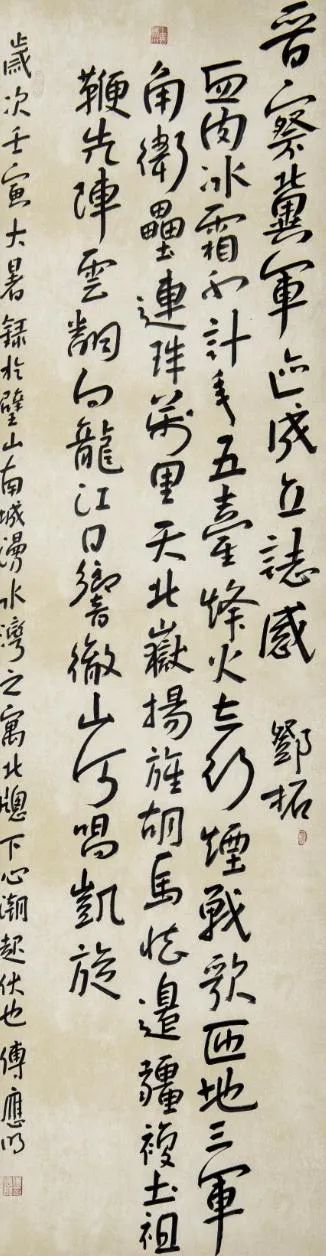 晉察冀軍區成立誌感 鄧拓
血肉冰霜不計年五臺烽火太行煙戰歌匝地三軍
角衛壘連珠萬里天北嶽揚旌胡馬怯邊疆複土祖
鞭先陣雲翻向龍江日響徹山河唱凱旋
歲次壬寅大暑録於璧山南城漫水灣之寓北牕下心潮起伏也傅應明